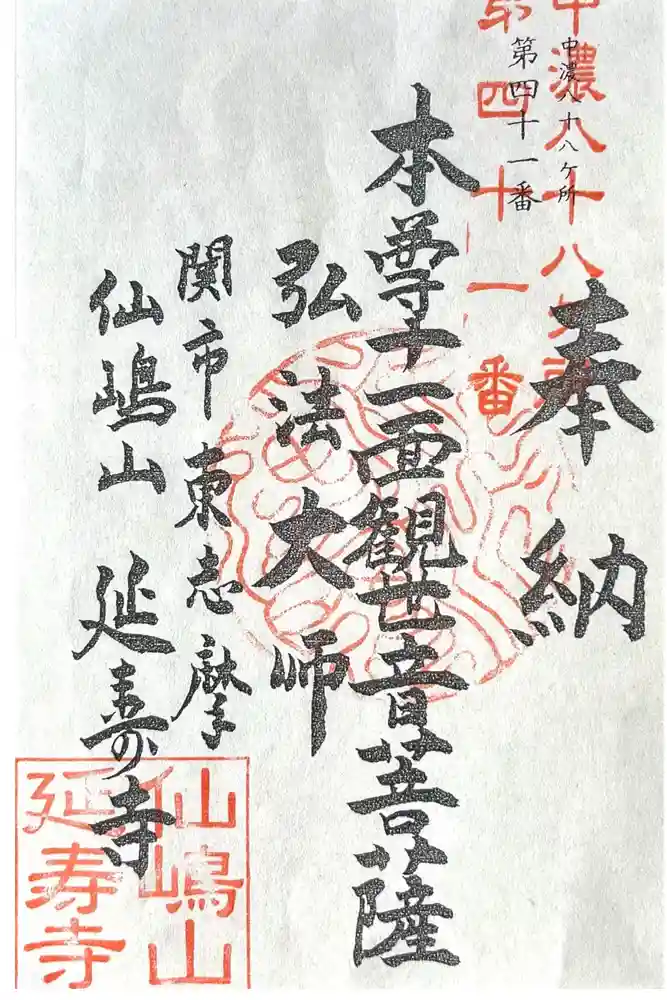 中濃八十八ヶ所
第四十一番
中濃八十八ヶ所
第四十一番
奉納
本尊十一面観世音菩薩
弘法大師
関市東志摩
仙嶋山 延寿寺
仙嶋山
延寿寺